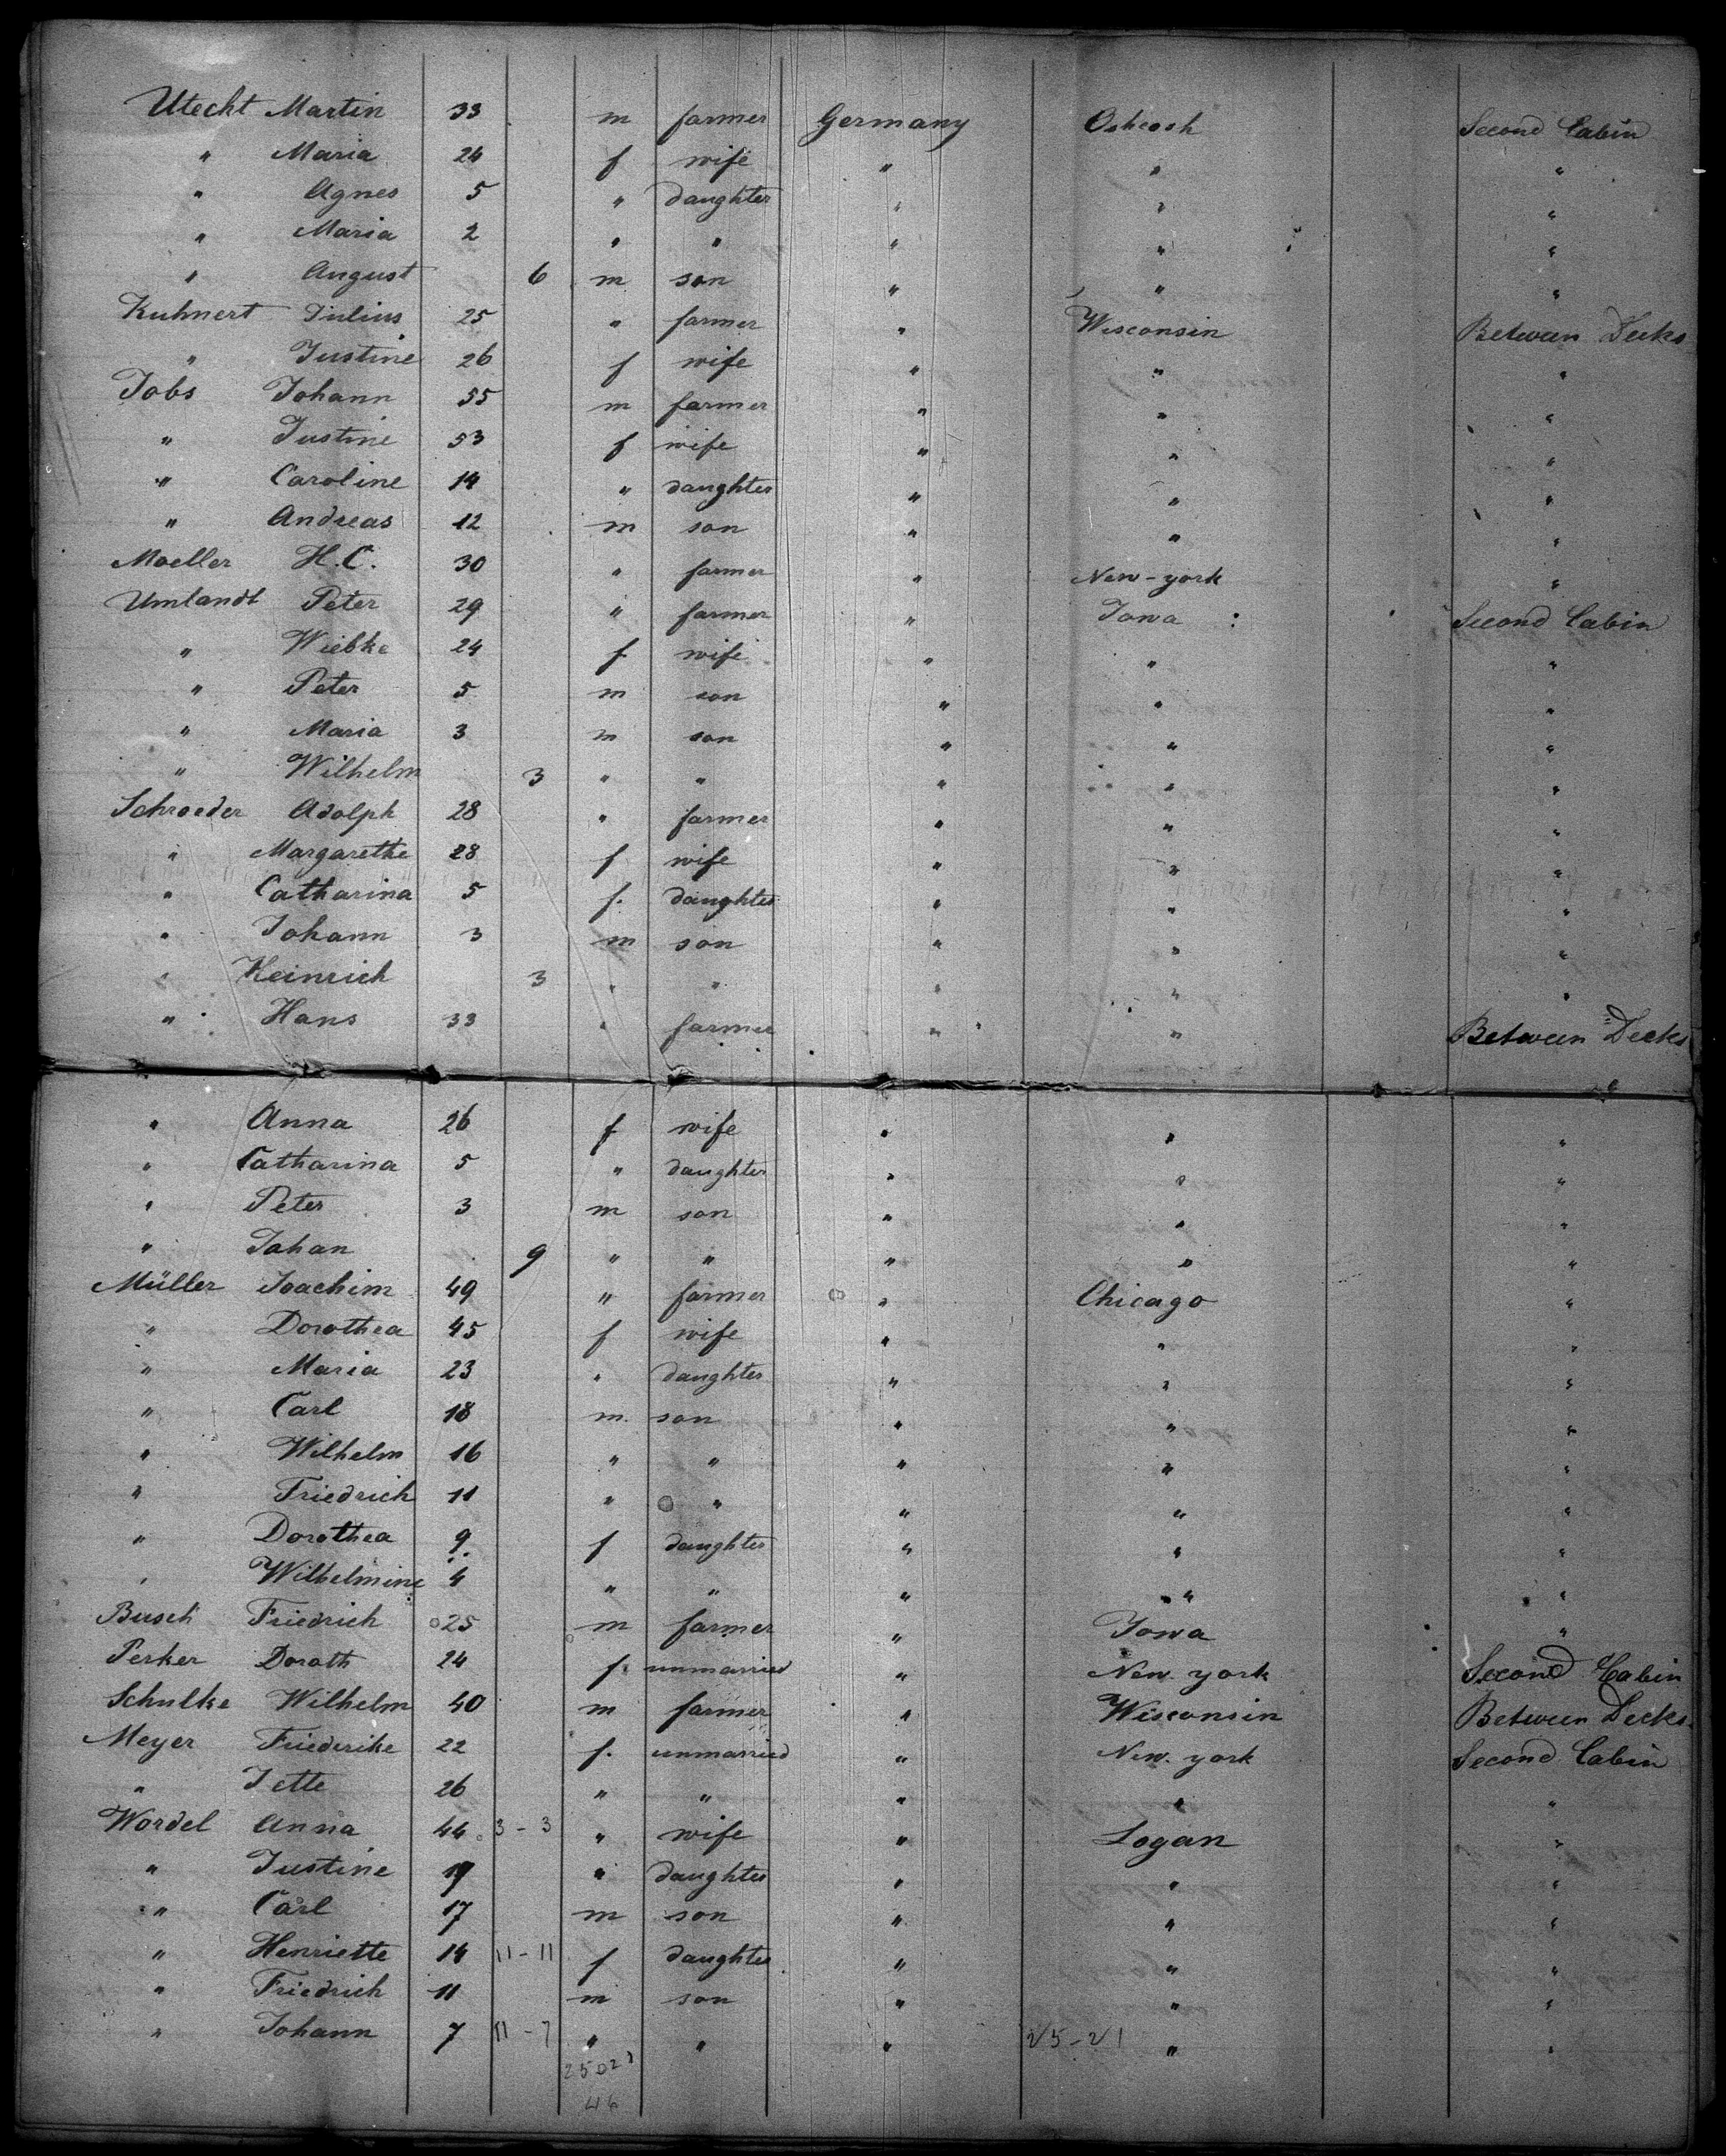 Utecht Martin 33 m farmer Germany Oshcosh Second Cabin
" Maria 24 f wife " " "
" Agnes 5 " daughter " " "
" Maria 2 " " " " "
" August 6 m son " " "
Kuhnert Julius 25 " farmer " Wisconsin Between Decks
" Justine 26 f wife " " "
Jobs Johann 55 m farmer " " "
" Justine 53 f wife " " "
" Caroline 14 " daughter " " "
" Andreas 12 m son " " "
Moeller H.C. 30 " farmer " New-york "
Umlandt Peter 29 " farmer " Iowa Second Cabin
" Wiebke 24 f wife " " "
" Peter 5 m son " " "
" Maria 3 m son " " "
" Wilhelm 3 " " " " "
Schroeder Adolph 28 " farmer " " "
" Margarethe 28 f wife " " "
" Catharina 5 f. daughter " " "
" Johann 3 m son " " "
" Heinrich 3 " " " " "
" Hans 33 " farmer " " Between Decks
" Anna 26 f wife " " "
" Catharina 5 " daughter " " "
" Peter 3 m son " " "
" Johan 9 " " " " "
Müller Joachim 49 " farmer " Chicago "
" Dorothea 45 f wife " " "
" Maria 23 " daughter " " "
" Carl 18 m. son " " "
" Wilhelm 16 " " " " "
" Friedrich 11 " " " " "
" Dorothea 9 f daughter " " "
" Wilhelmine 4 " " " " "
Busch Friedrich 25 m farmer " Iowa "
Perker Doroth 24 f. unmarried " New. york Second Cabin
Schulke Wilhelm 40 m farmer " Wisconsin Between Decks.
Meyer Friederike 22 f. unmarried " New. york Second Cabin
" Jette 26 " " " " "
Wordel Anna 44 3-3 " wife " Logan "
" Justine 19 " daughter " " "
" Carl 17 m son " " "
" Henriette 14 11-11 f daughter " " "
" Friedrich 11 m son " " "
" Johann 7 11-7 " " " 25-21 " "
46